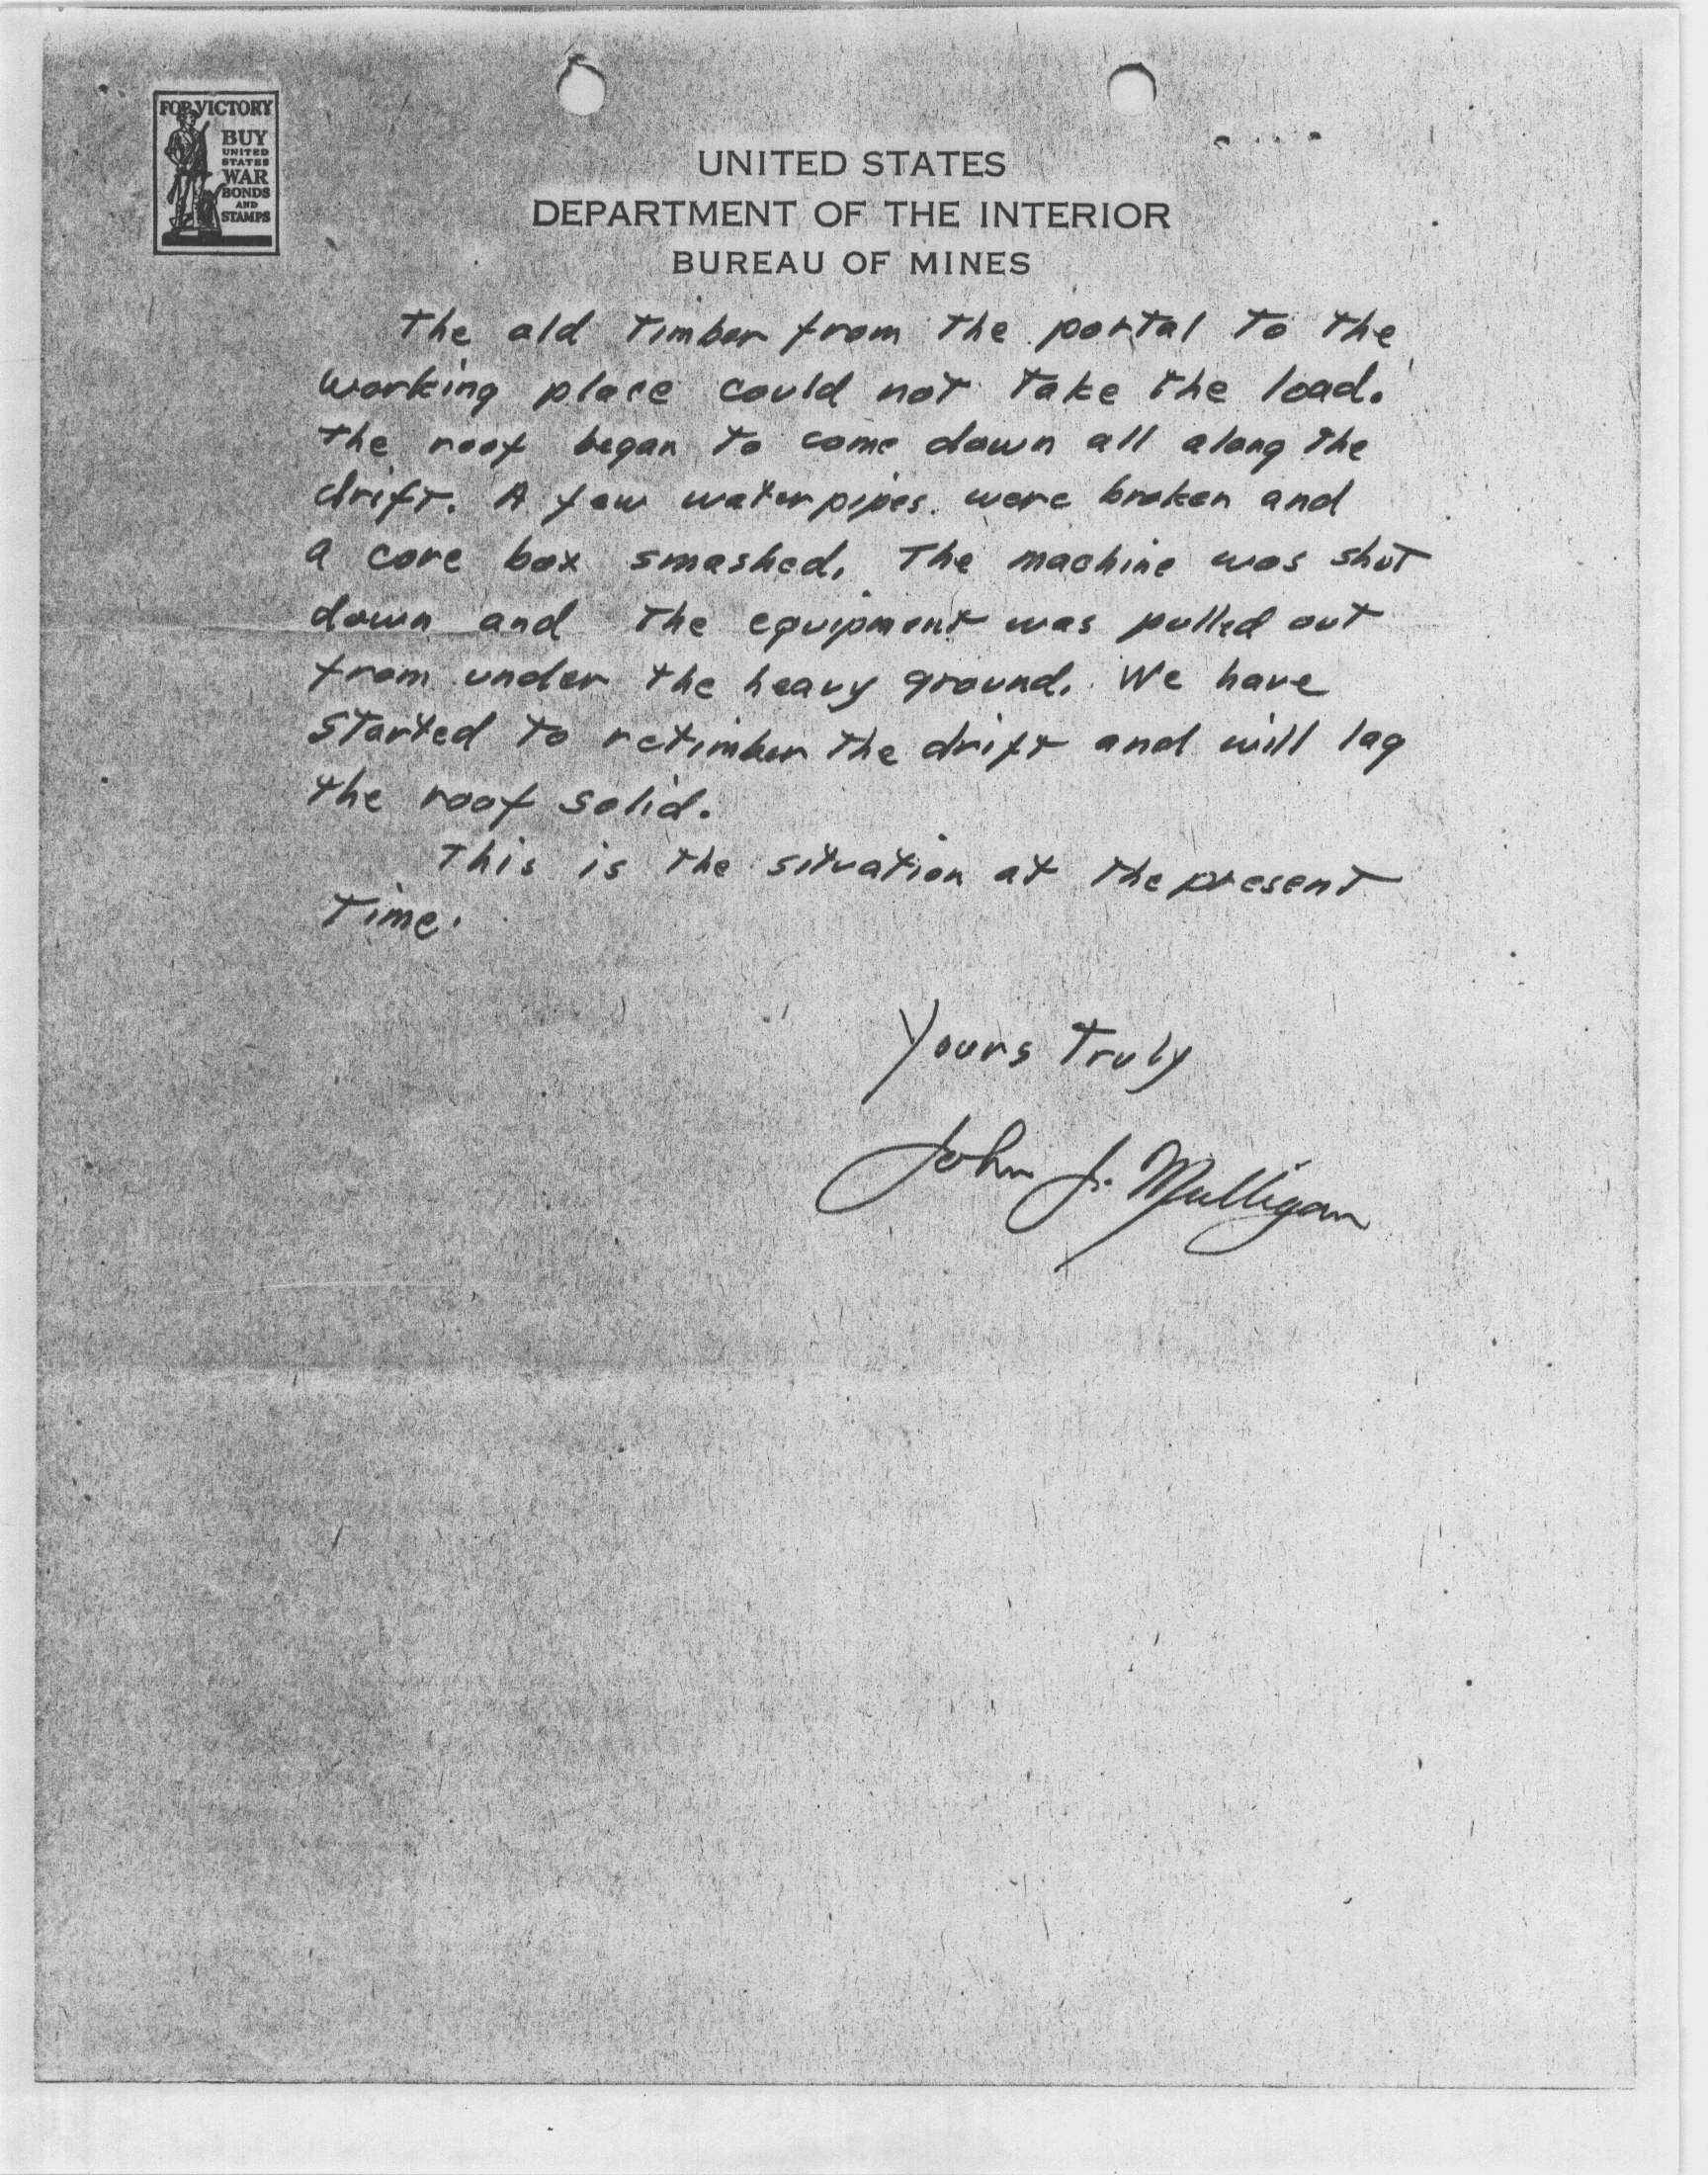 FOR VICTORY
BUY
UNITED
STATES
WAR
BONDS
AND
STAMPS
UNITED STATES
DEPARTMENT OF THE INTERIOR
BUREAU OF MINES
The old timber from the portal to the
working place could not take the load.
The roof began to come down all along the
drift. A few water pipes were broken and
a core box smashed. The machine was shut
down and the equipment was pulled out
from under the heavy ground. We have
started to retimber the drift and will lag
the roof solid.
This is the situation at the present
time.
Yours Truly
John J. Mulligan